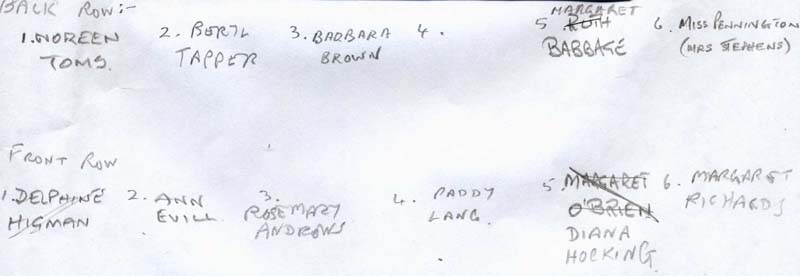 BACK ROW:-
1. NOREEN TOMS.
2. BERYL TAPPER
3. BARBARA BROWN
4.
5. RUTH MARGARET BABBAGE
6. MISS PENNINGTON (MRS STEPHENS)
FRONT ROW
1. DELPHINE HIGMAN
2. ANN EVILL.
3. ROSEMARY ANDREWS
4. PADDY LANG.
5. MARGARET O'BRIEN DIANA HOCKING.
6. MARGARET RICHARDS